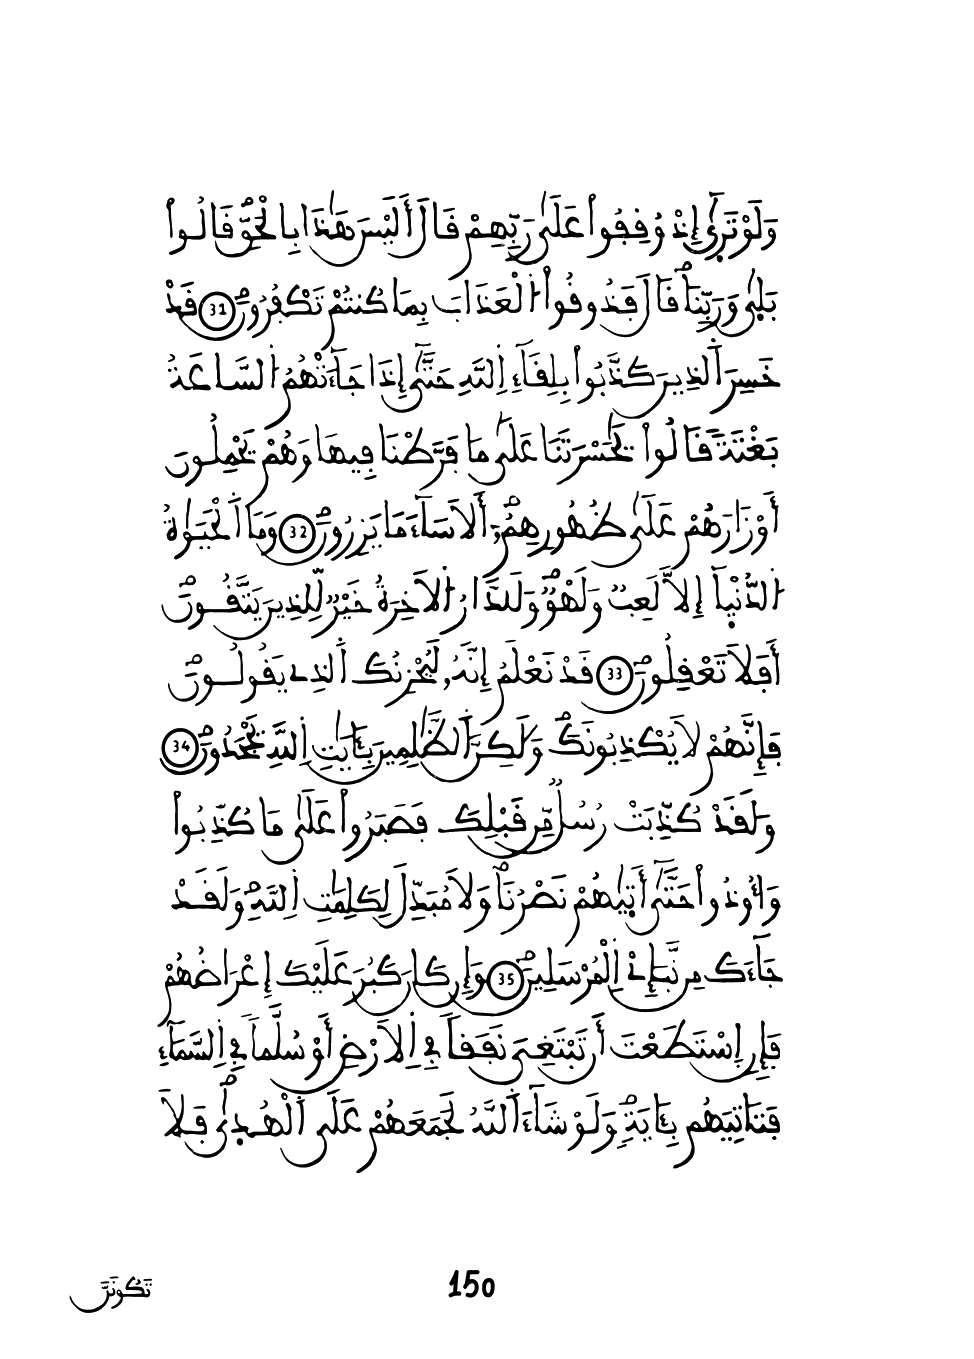 وَلَوْ تَر۪ىٰٓ إِذْ وُقِفُواْ عَلَىٰ رَبِّهِمْ قَالَ أَلَيْسَ هَٰذَا بِالْحَقِّ قَالُواْ
بَل۪ىٰ وَرَبِّنَاۖ قَالَ فَذُوقُواْ اُ۬لْعَذَابَ بِمَا كُنتُمْ تَكْفُرُونَۖ 31 قَدْ
خَسِرَ اَ۬لذِينَ كَذَّبُواْ بِلِقَآءِ اِ۬للَّهِ حَتَّىٰٓ إِذَا جَآءَتْهُمُ اُ۬لسَّاعَةُ
بَغْتَةٗ قَالُواْ يَٰحَسْرَتَنَا عَلَىٰ مَا فَرَّطْنَا فِيهَا وَهُمْ يَحْمِلُونَ
أَوْزَارَهُمْ عَلَىٰ ظُهُورِهِمُۥٓۖ أَلَا سَآءَ مَا يَزِرُونَۖ 32 وَمَا اَ۬لْحَيَوٰةُ
اُ۬لدُّنْي۪آ إِلَّا لَعِبٞ وَلَهْوٞۖ وَلَلدَّارُ اُ۬لَاخِرَةُ خَيْرٞ لِّلذِينَ يَتَّقُونَۖ
أَفَلَا تَعْقِلُونَۖ 33 قَدْ نَعْلَمُ إِنَّهُۥ لَيُحْزِنُكَ اَ۬لذِے يَقُولُونَۖ
فَإِنَّهُمْ لَا يُكْذِبُونَكَۖ وَلَٰكِنَّ اَ۬لظَّٰلِمِينَ بِـَٔايَٰتِ اِ۬للَّهِ يَجْحَدُونَۖ 34
وَلَقَدْ كُذِّبَتْ رُسُلٞ مِّن قَبْلِكَ فَصَبَرُواْ عَلَىٰ مَا كُذِّبُواْ
وَأُوذُواْ حَتَّىٰٓ أَت۪يٰهُمْ نَصْرُنَاۖ وَلَا مُبَدِّلَ لِكَلِمَٰتِ اِ۬للَّهِۖ وَلَقَدْ
جَآءَكَ مِن نَّبَإِےْ اِ۬لْمُرْسَلِينَۖ 35 وَإِن كَانَ كَبُرَ عَلَيْكَ إِعْرَاضُهُمْ
فَإِنِ اِ۪سْتَطَعْتَ أَن تَبْتَغِيَ نَفَقاٗ فِے اِ۬لَارْضِ أَوْ سُلَّماٗ فِے اِ۬لسَّمَآءِ
فَتَاتِيَهُم بِـَٔايَةٖۖ وَلَوْ شَآءَ اَ۬للَّهُ لَجَمَعَهُمْ عَلَى اَ۬لْهُد۪ىٰۖ فَلَا
تَكُونَنَّ
150